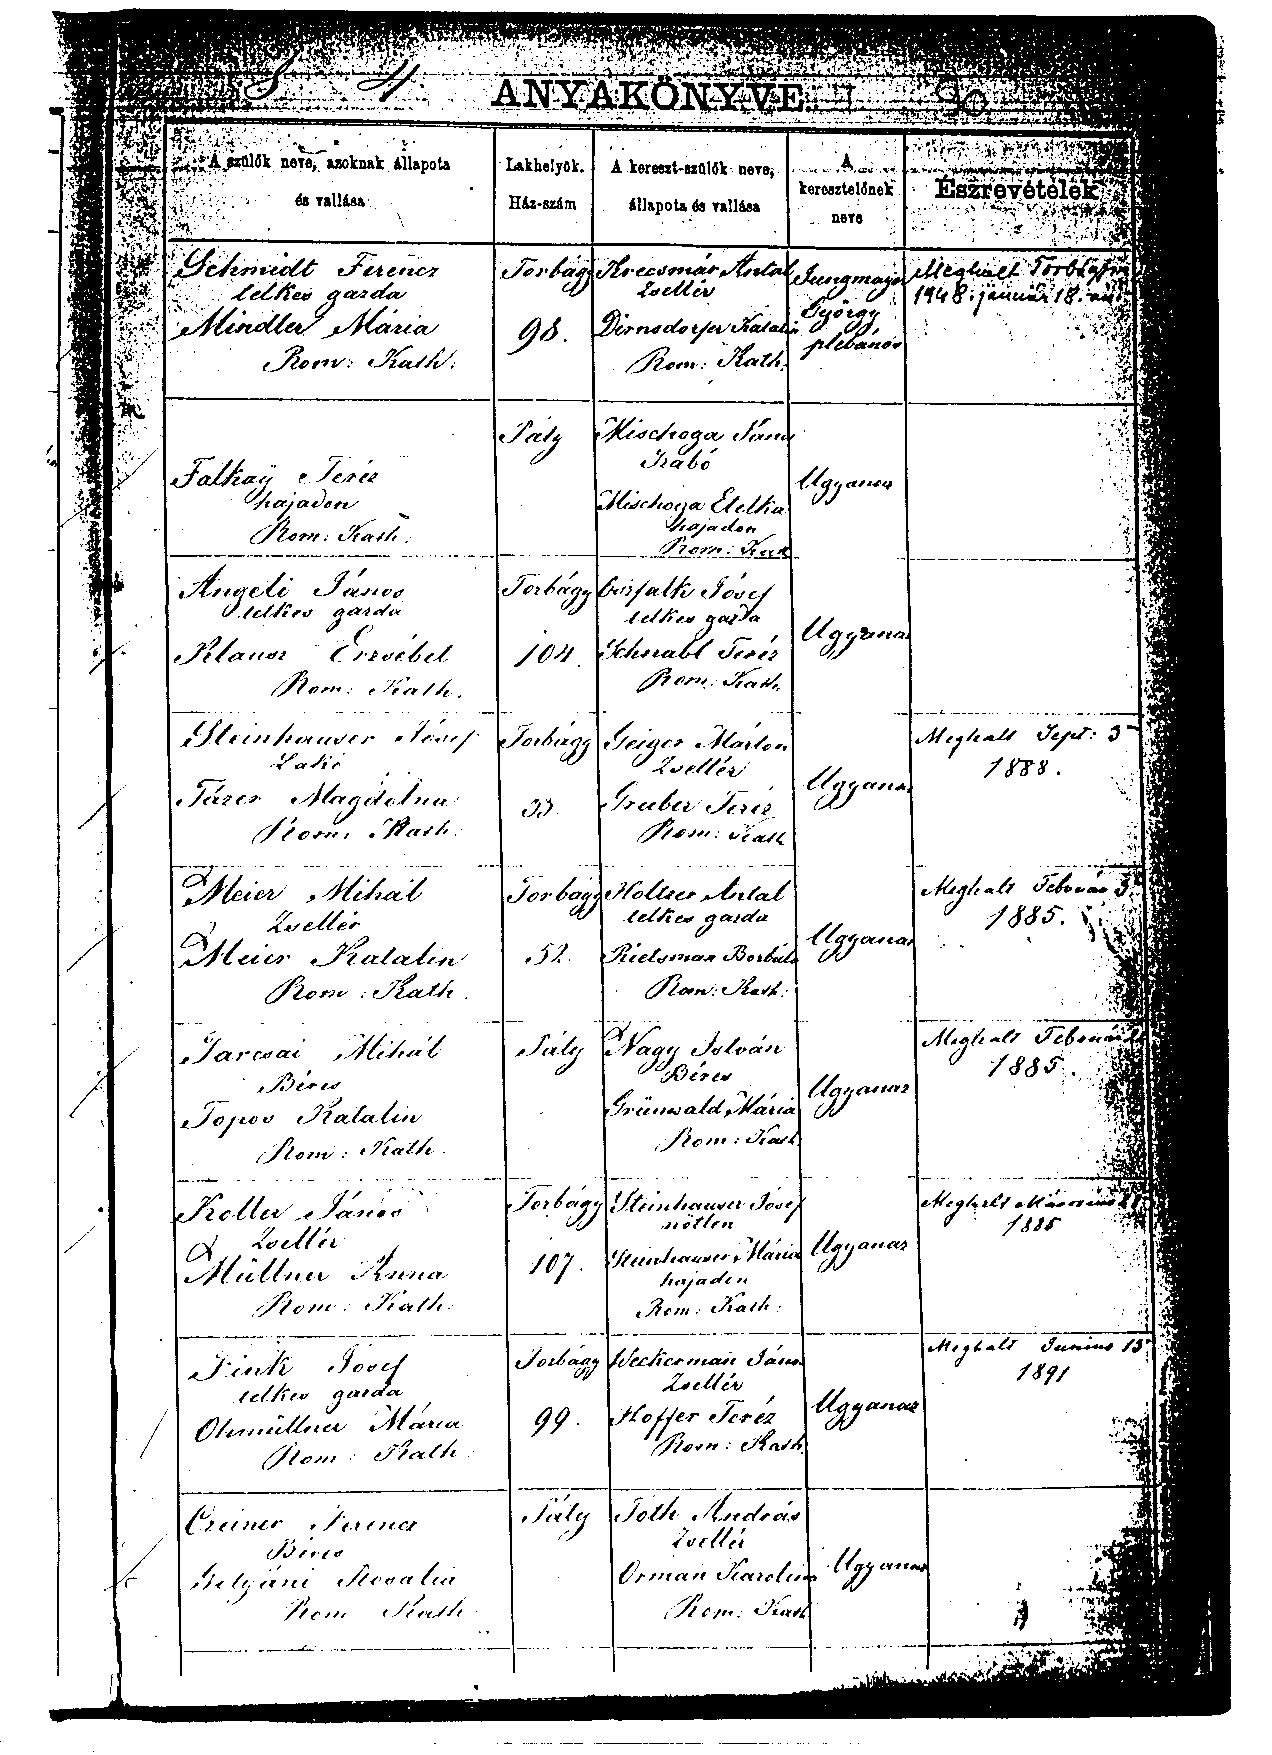 8 4.
ANYAKÖNYVE
90
A szülők neve, azoknak állapota
és vallása
Lakhelyök.
Ház-szám
A kereszt-szülők neve,
állapota és vallása
A
keresztelőnek
neve
Észrevételek
Schmidt Ferencz
telkes gazda
Mindler Mária
Rom: Kath.
Torbágy
98.
Krecsmár Antal
Zsellér
Dirnsdorfer Katalin
Rom: Kath.
Jungmayer
György
plébános
Meghalt Torbágyon
1948. január 18.
Falkay Teréz
hajadon
Rom: Kath.
Pály
Mischoga János
Szabó
Mischoga Etelka
hajadon
Rom: Kath
Ugyanaz
Angeli János
telkes gazda
Klausz Erzsébet
Rom: Kath.
Torbágy
104.
József
telkes gazda
Schnabl Teréz
Rom: Kath.
Ugyanaz
Steinhauser József
Lakó
Magdolna
Rom: Kath.
Torbágy
33.
Geiger Márton
Zsellér
Gruber Teréz
Rom: Kath
Ugyanaz
Meghalt Sept: 5
1888.
Meier Mihál
Zsellér
Meier Katalin
Rom: Kath.
Torbágy
52.
Holtzer Antal
telkes gazda
Rietsman Borbála
Rom: Kath.
Ugyanaz
Meghalt Február 3.
1885.
Tarcsai Mihál
Béres
Topos Katalin
Rom: Kath.
Pály
Nagy István
Béres
Grünwald Mária
Rom: Kath
Ugyanaz
Meghalt Február
1885.
Koller János
Zsellér
Müllner Anna
Rom: Kath.
Torbágy
107.
Steinhauser József
nőtlen
Steinhauser Mária
hajadon
Rom: Kath.
Ugyanaz
Meghalt Márczius
1885
Fink József
telkes gazda
Ohmüllner Mária
Rom: Kath.
Torbágy
99.
Weckerman János
Zsellér
Hoffer Teréz
Rom: Kath.
Ugyanaz
Meghalt Junius 15
1891
Czeiner Ferencz
Béres
Rosalia
Rom Kath
Pály
Tóth András
Zsellér
Orman Karolina
Rom: Kath
Ugyanaz